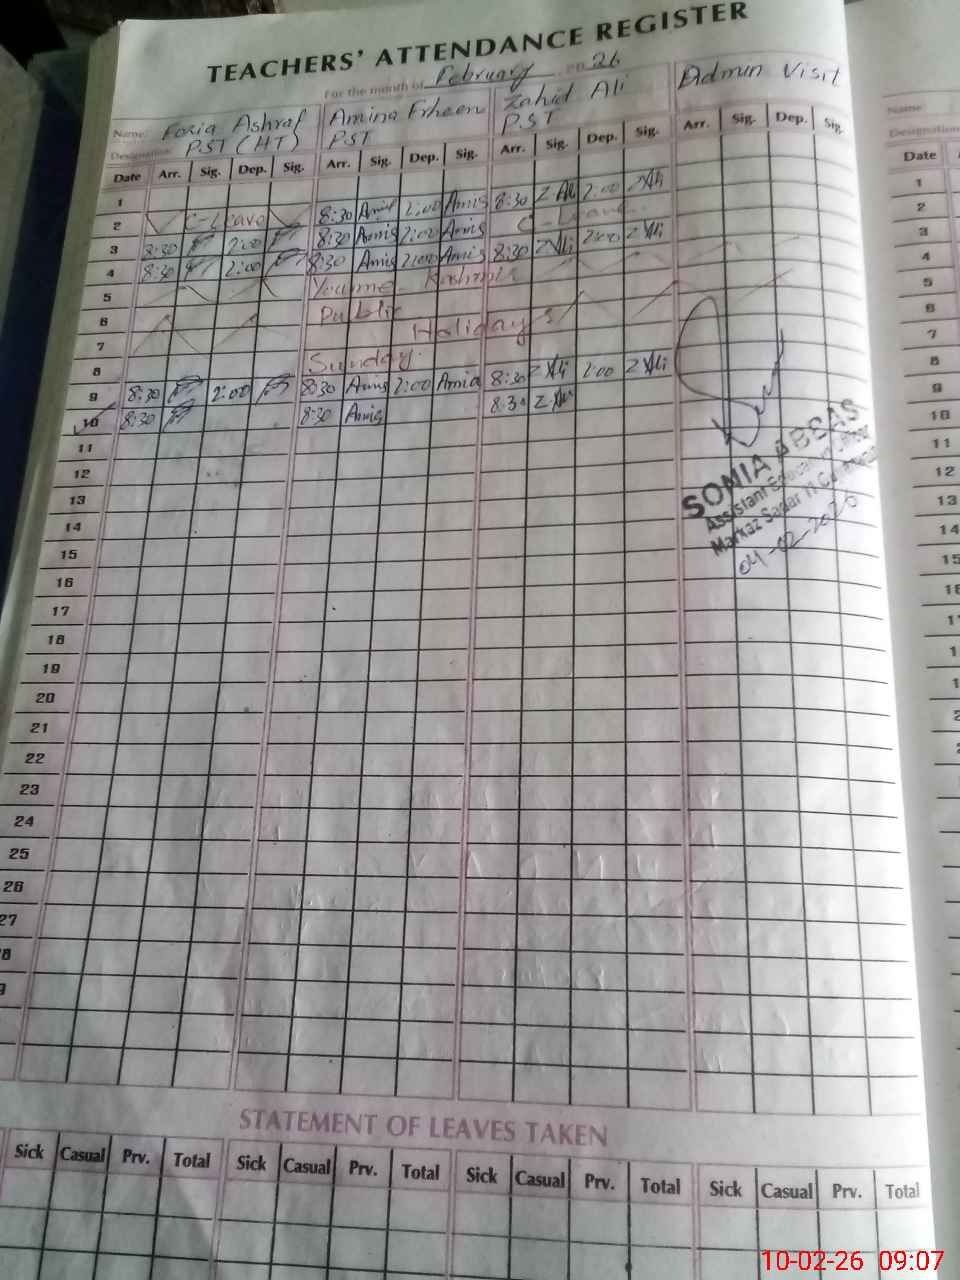 TEACHERS' ATTENDANCE REGISTER
For the month of February 20 26
Name: Fozia Ashraf Amina Erheen Zahid Ali Admin Visit
Designation: P.S.T (HT) PST P.S.T
Date Arr. Sig. Dep. Sig. Arr. Sig. Dep. Sig. Arr. Sig. Dep. Sig. Arr. Sig. Dep. Sig.
1
2 C-Leave 8:30 Amis 2:00 Amis 8:30 Z Ali 2:00 Z Ali
3 8:30 2:00 8:30 Amis 2:00 Amis C-Leave
4 8:30 2:00 8:30 Amis 2:00 Amis 8:30 Z Ali 2:00 Z Ali
5 Youme Kashmir
6 Public
7 Holidays
8 Sunday
9 8:30 2:00 8:30 Amis 2:00 Amis 8:30 Z Ali 2:00 Z Ali
10 8:30 8:30 Amis 8:30 Z Ali
11
12
13
14
15
16
17
18
19
20
21
22
23
24
25
26
27
SONIA ABBAS
Assistant
Markaz Sadar
04-02-2026
STATEMENT OF LEAVES TAKEN
Sick Casual Prv. Total Sick Casual Prv. Total Sick Casual Prv. Total Sick Casual Prv. Total
Name:
Designation
Date
1
2
3
4
5
6
7
8
9
10
11
12
13
14
15
10-02-26 09:07